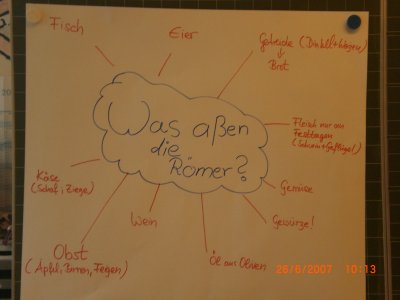 Fisch
Eier
Getreide (Dinkel+Weizen)
Brot
Was aßen
die
Römer?
Fleisch nur an
Festtagen
(Schwein+Geflügel)
Gemüse
Gewürze!
Öl aus Oliven
Wein
Obst
(Äpfel, Birnen, Feigen)
Käse
(Schaf, Ziege)
26/6/2007 10:13